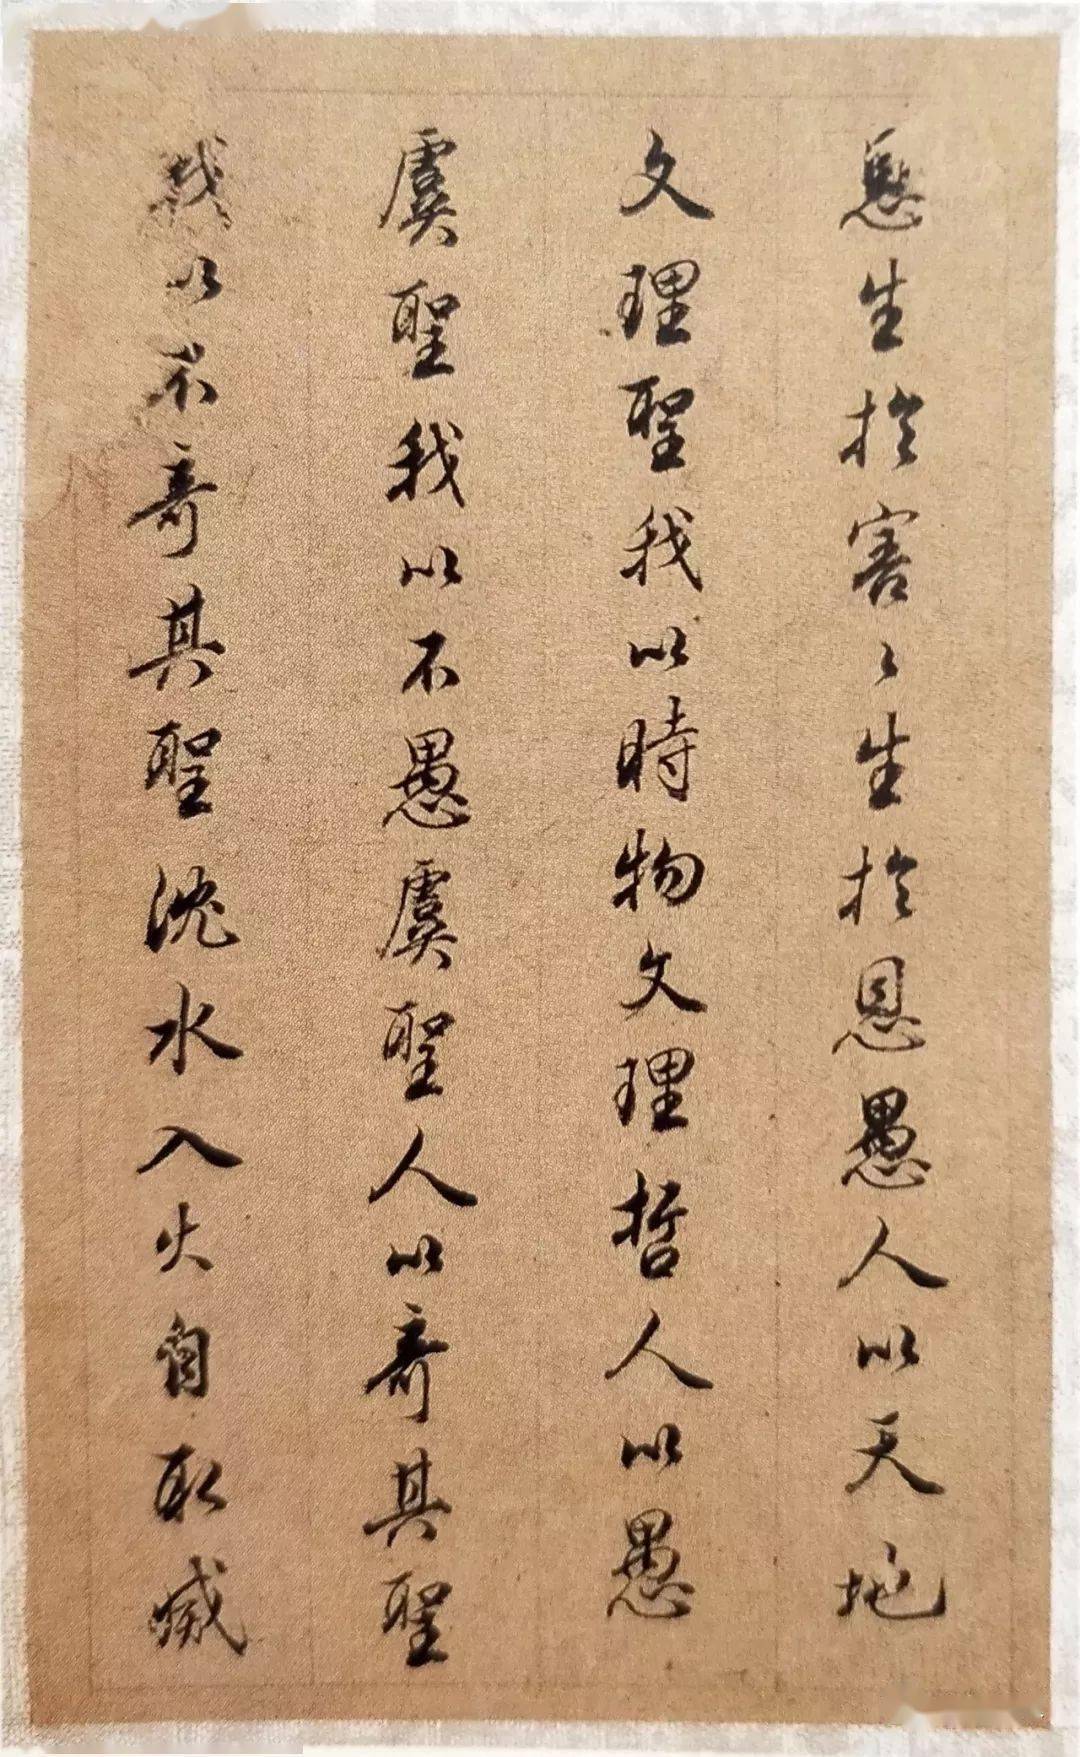 恩生扵害〻生扵恩愚人以天地
文理聖我以時物文理哲人以愚
虞聖我以不愚虞聖人以奇其聖
我以不奇其聖沈水入火自取滅